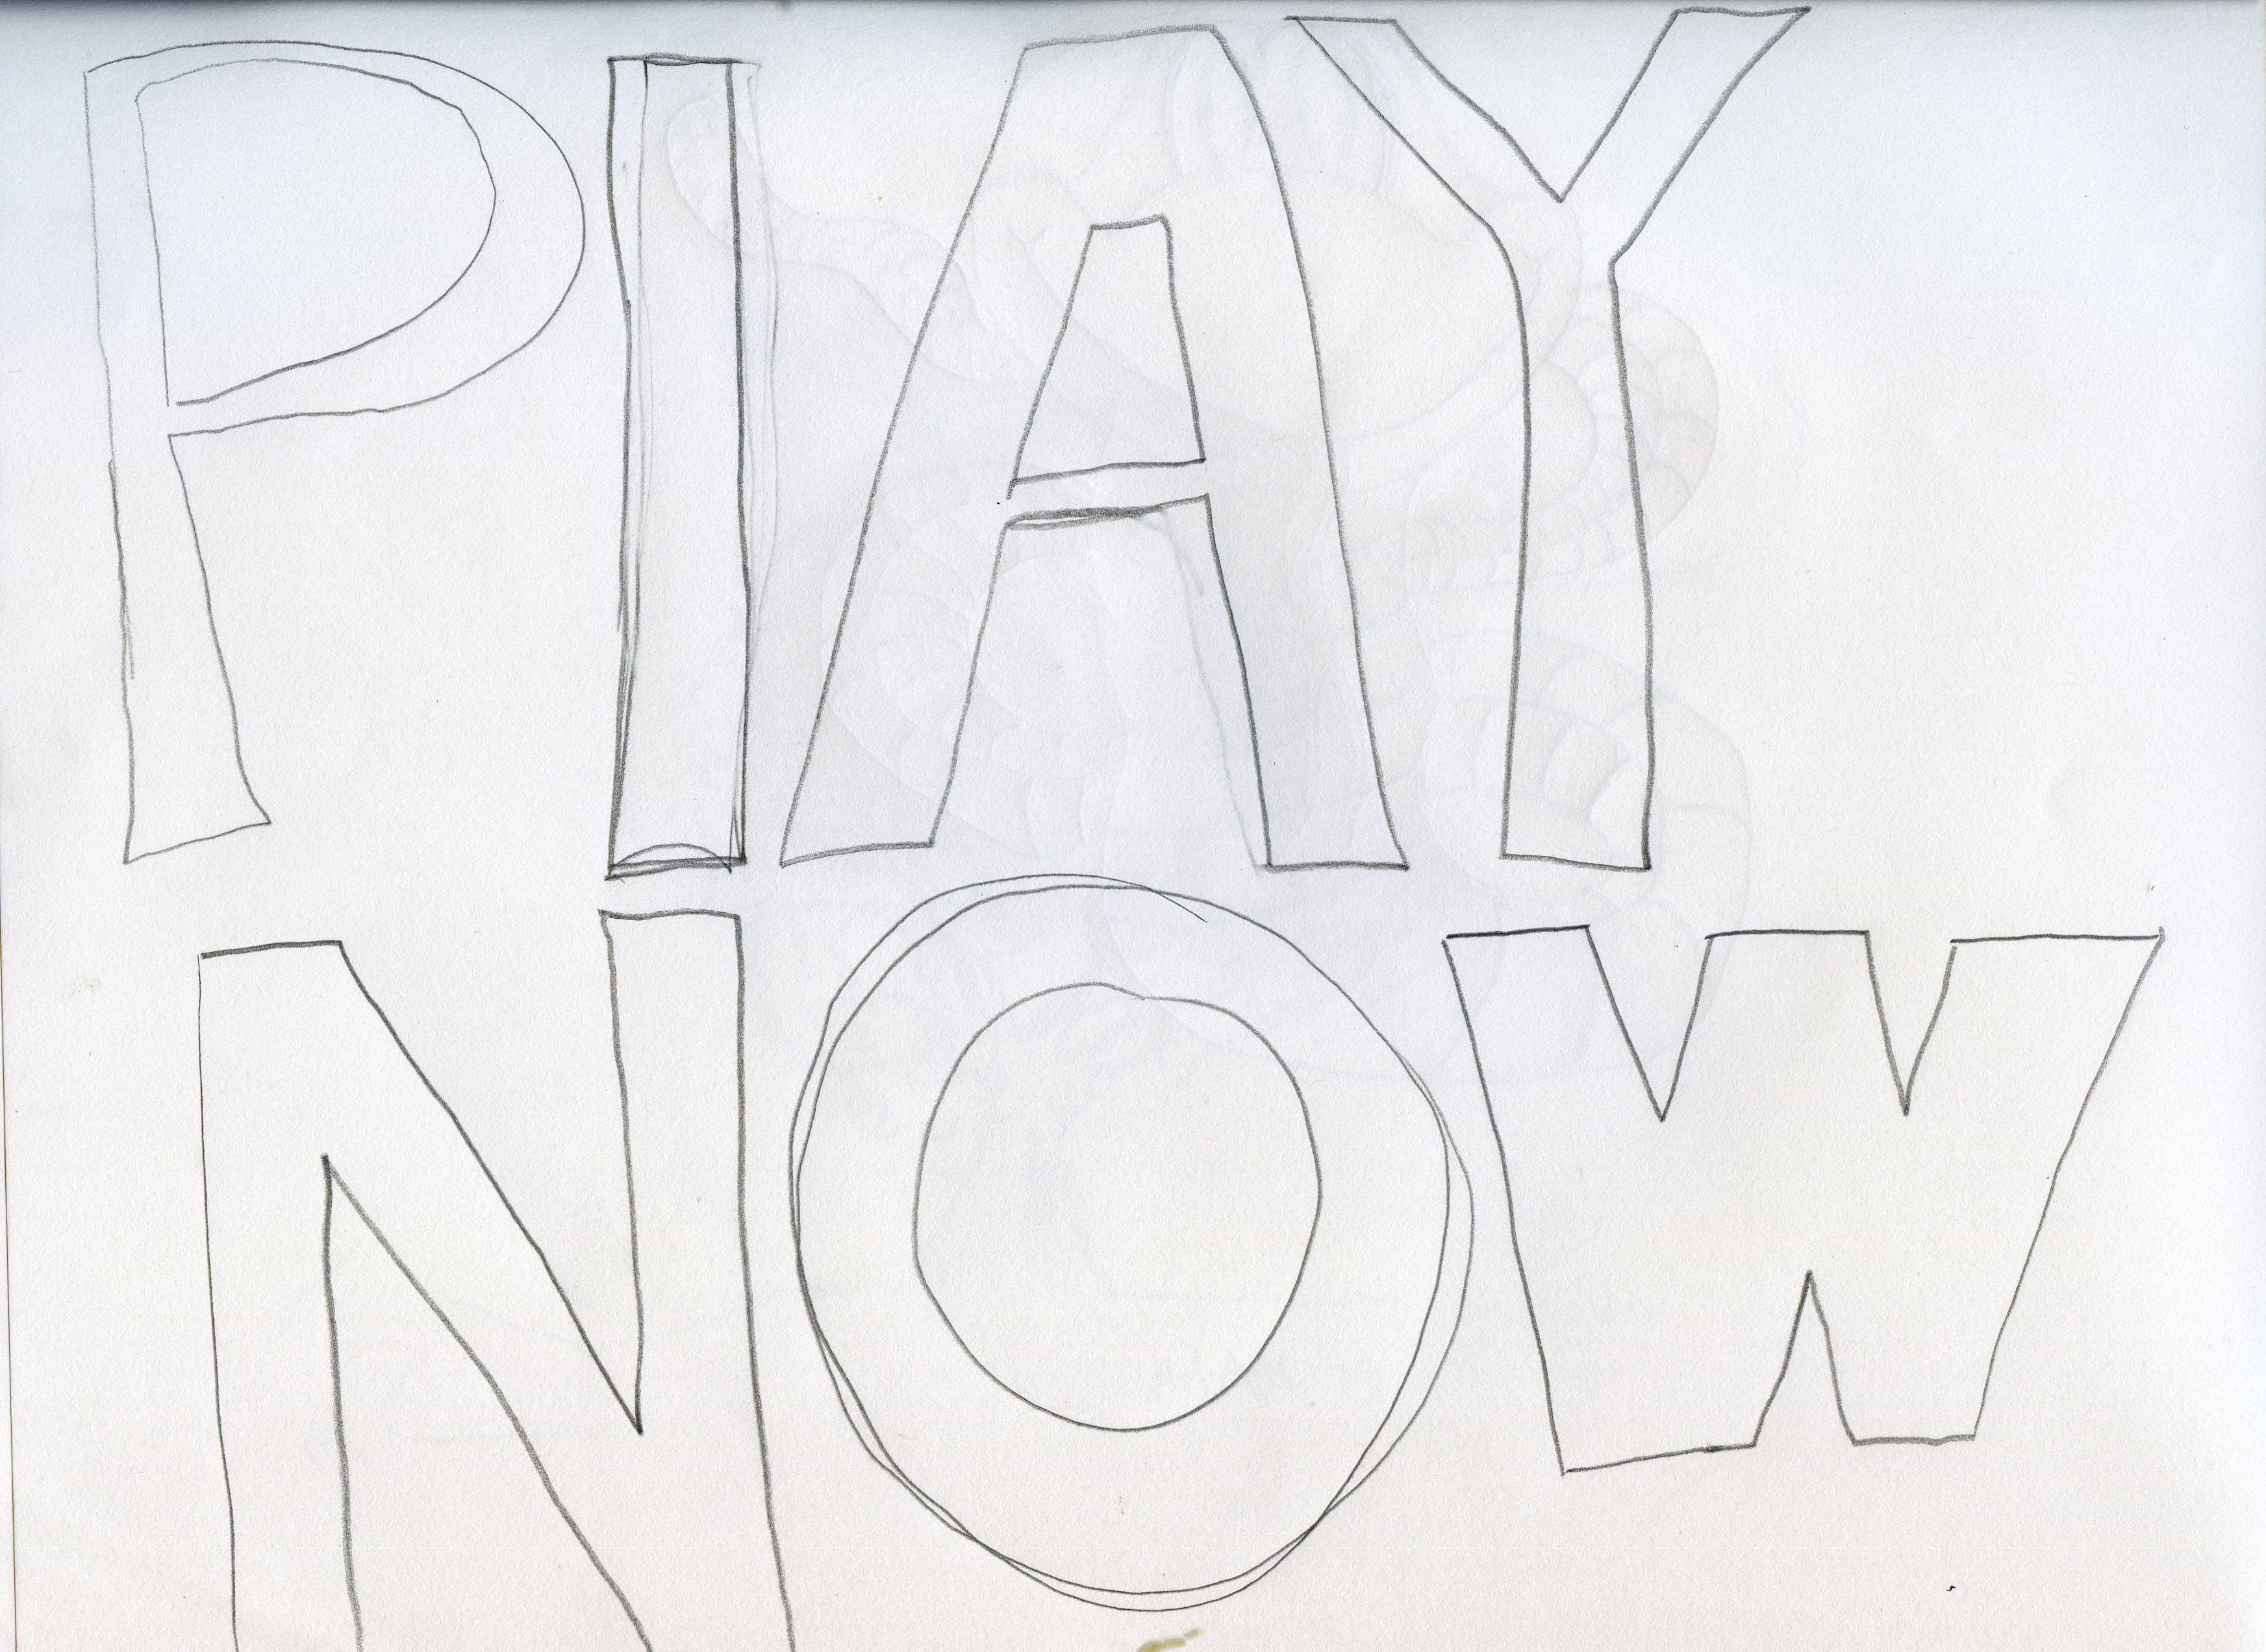 PlAY
NOW